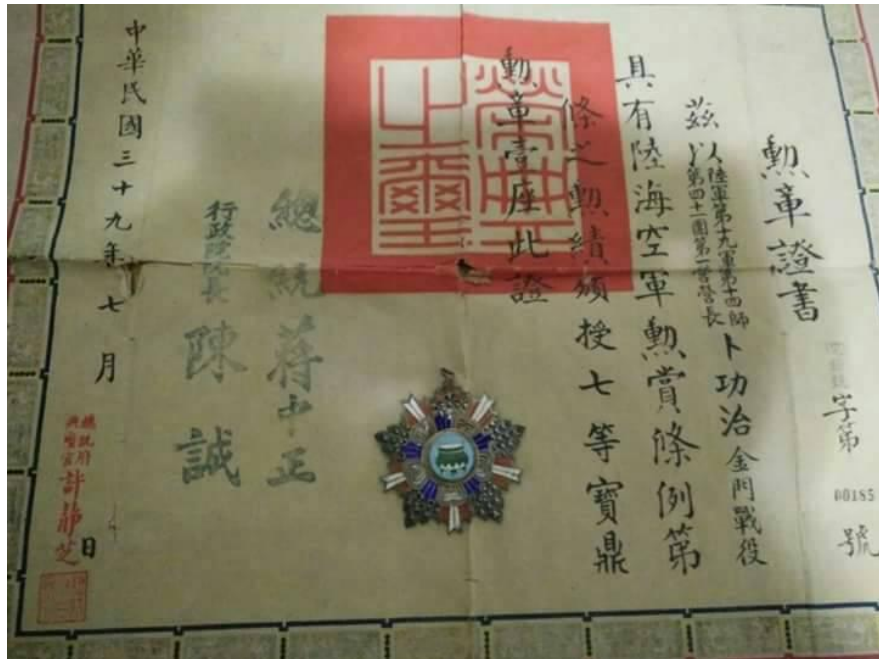 字第00185號
勲章證書
茲以陸軍第十九軍第十四師第四十一團第一營營長卜功治金門戰役
具有陸海空軍勲賞條例第
條之勲績頒授七等寶鼎
勲章壹座此證
榮典之璽
總統蔣中正
行政院院長陳誠
中華民國三十九年七月日
總統府典璽官許靜芝